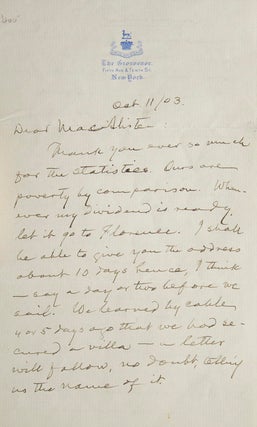 The Grosvenor.
Fifth Ave & Tenth St.
New York.
Oct 11/03.
Dear MacAlister:
Thank you ever so much
for the statistics. Ours are
poverty by comparison. When-
ever my dividend is ready,
let it go to Florence. I shall
be able to give you the address
about 10 days hence, I think
— say a day or two before we
sail. We learned by cable
4 or 5 days ago that we had se-
cured a villa — a letter
will follow, no doubt, telling
us the name of it.